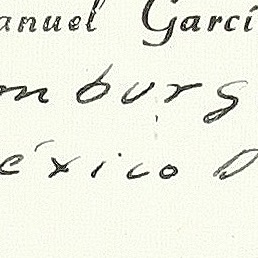 anuel Garcí
mburg
éxico D